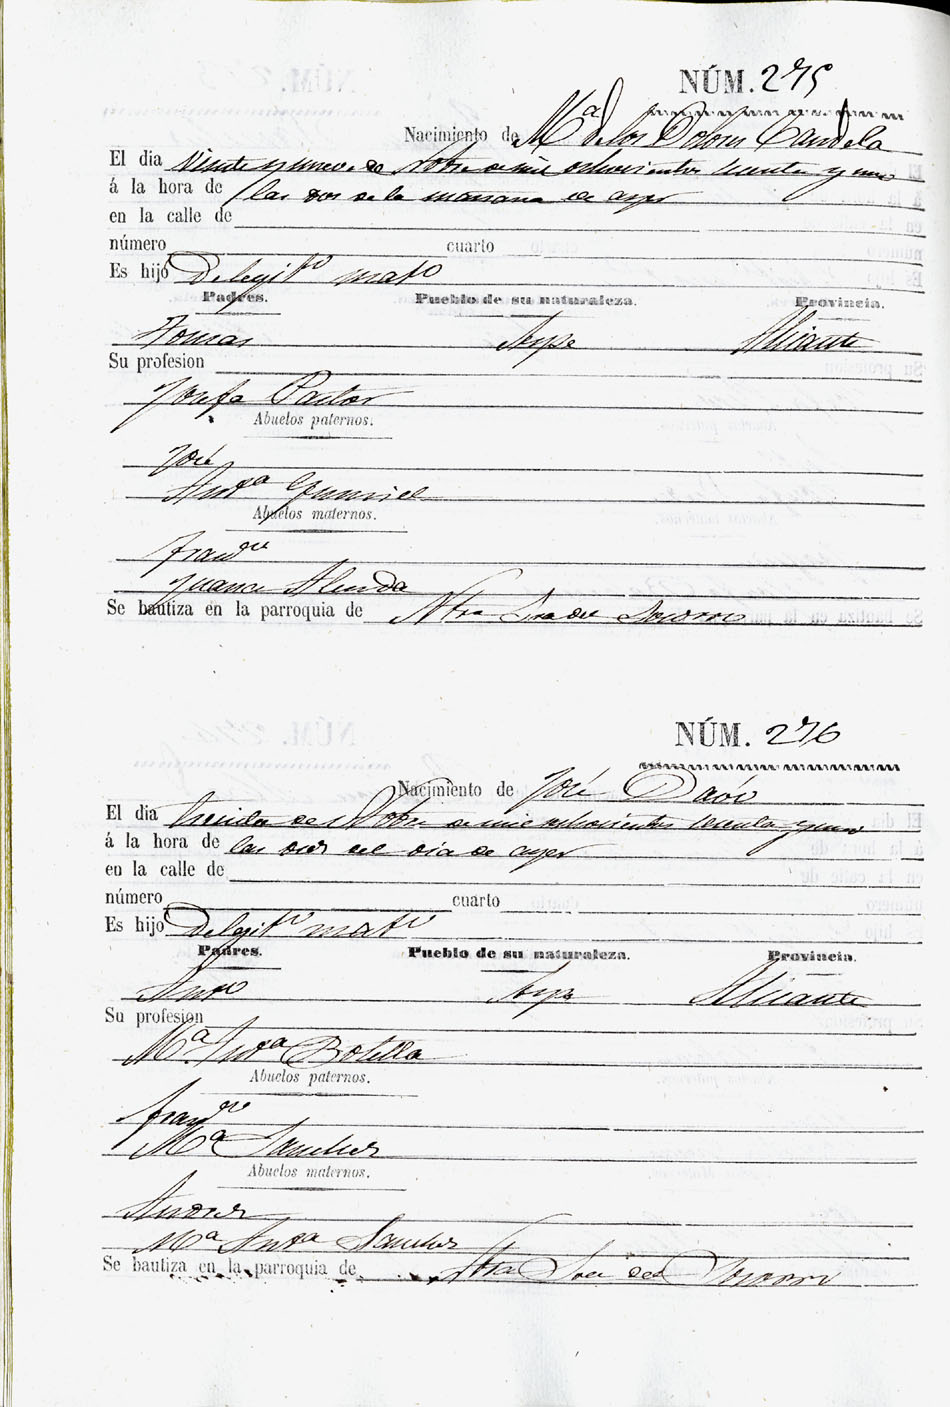 NÚM. 275
Nacimiento de Mª de los Dolores Candela
El dia veinte y nueve de Obre de mil ochocientos sesenta y uno
á la hora de las dos de la mañana de ayer
en la calle de
número cuarto
Es hijo de legitº matº
Padres. Pueblo de su naturaleza. Provincia.
Tomas Aspe Alicante
Su profesion
Josefa Pastor
Abuelos paternos.
José
Antª
Abuelos maternos.
Francco
Juana Alenda
Se bautiza en la parroquia de Ntra Sra del Socorro
NÚM. 276
Nacimiento de José Davó
El dia treinta de Obre de mil ochocientos sesenta y uno
á la hora de las dies del dia de ayer
en la calle de
número cuarto
Es hijo de legitº matº
Padres. Pueblo de su naturaleza. Provincia.
Antº Aspe Alicante
Su profesion
Mª Antª Botella
Abuelos paternos.
Francco
Mª Sanches
Abuelos maternos.
Andres
Mª Antª Sanches
Se bautiza en la parroquia de Ntra Sra del Socorro